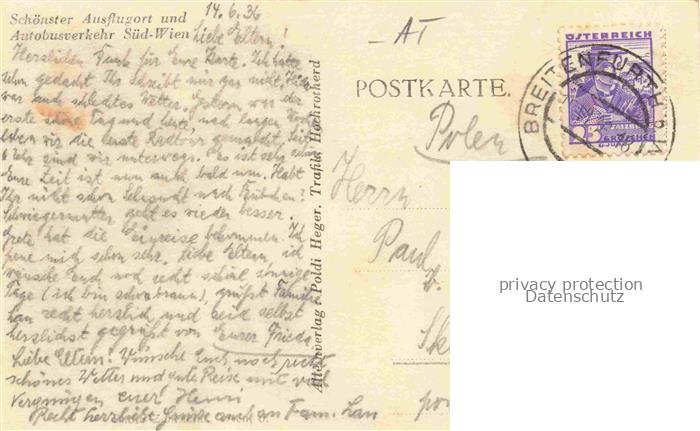 Schönster Ausflugort und
Autobusverkehr Süd-Wien
14.6.36
Liebe Eltern!
Herzlichen Dank für Eure Karte. Ich hatte
schon gedacht Ihr schreibt mir gar nicht. Leider
war auch schlechtes Wetter. Gestern war der
erste schöne Tag und heute, nach langer
haben wir die erste Radtour gemacht. Seit
6 Uhr sind wir unterwegs. Es ist sehr schön
Eure Zeit ist nun auch bald um. Habt
Ihr nicht schon Sehnsucht nach
Schwiegermutter geht es wieder besser.
Grete hat die Einreise bekommen. Ich
freue mich schon sehr, liebe Eltern, ich
wünsche Euch noch recht schöne sonnige
Tage (ich bin schon braun), grüsst Familie
Lau recht herzlich und seid selbst
herzlichst gegrüßt von Eurer Frieda
Liebe Eltern! Wünsche Euch noch recht
schönes Wetter und gute Reise mit viel
Vergnügen euer Heini
Recht herzliche Grüsse auch an Fam. Lau
Alleinverlag: Poldi Heger, Trafik Hochrotherd
- AT
POSTKARTE.
Polen
Herrn
Paul
b.
Sk
po
ÖSTERREICH
SALZBURG
25 GROSCHEN
BREITENFURTH
privacy protection
Datenschutz